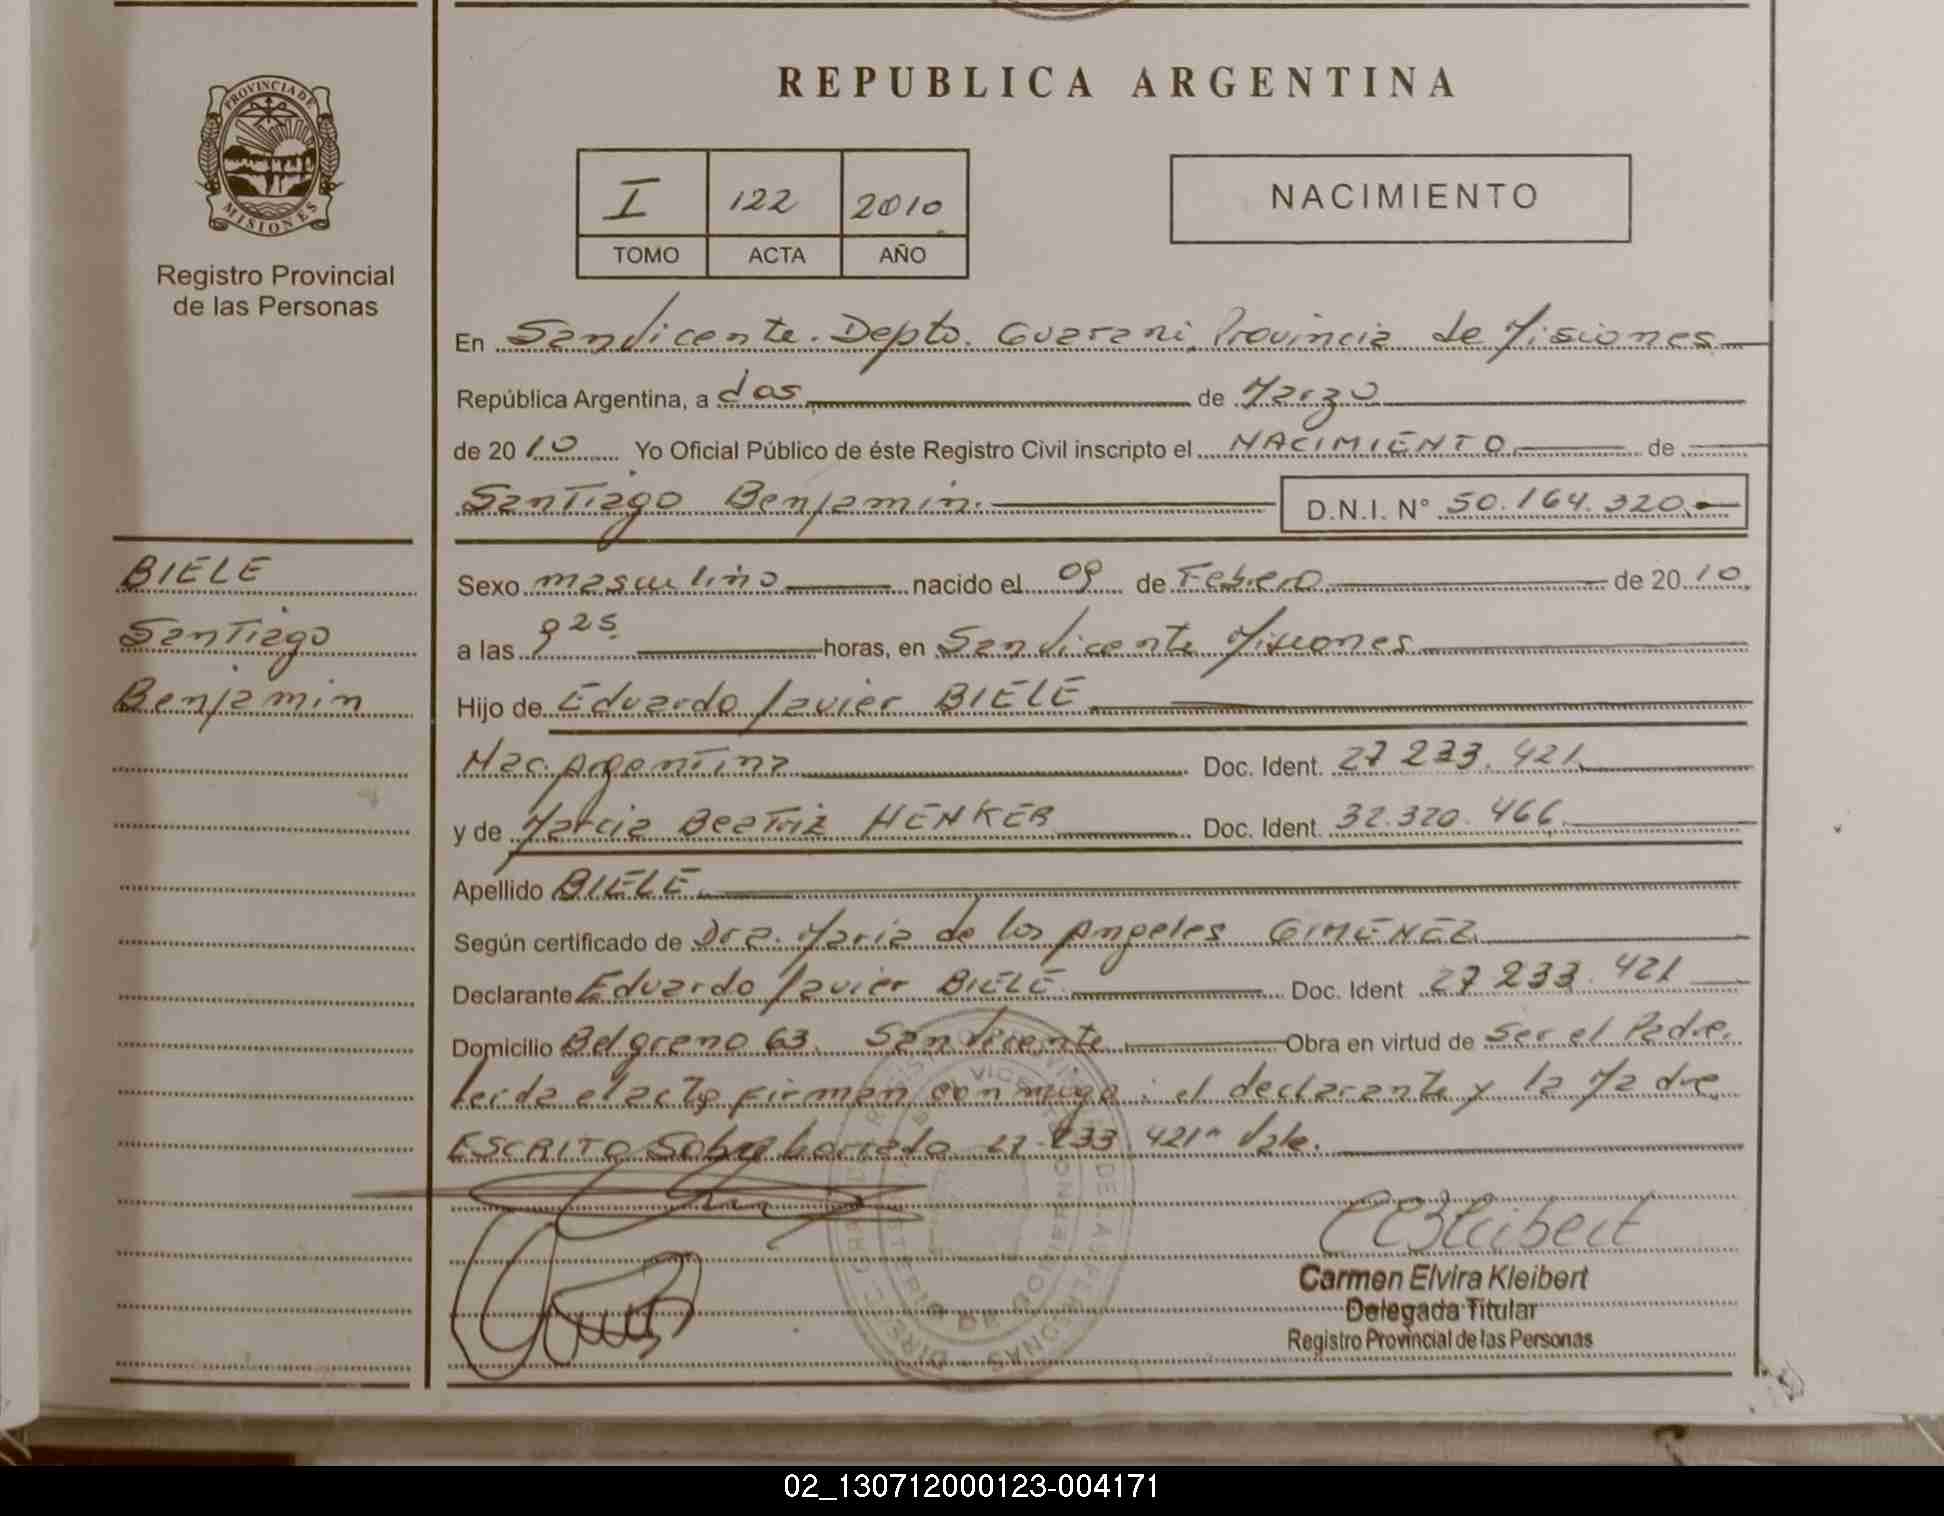 REPUBLICA ARGENTINA
PROVINCIA DE
MISIONES
Registro Provincial
de las Personas
I 122 2010
TOMO ACTA AÑO
NACIMIENTO
En San Vicente. Depto. Guarani, Provincia de Misiones
República Argentina, a dos de Marzo
de 2010 Yo Oficial Público de éste Registro Civil inscripto el NACIMIENTO de
Santiago Benjamin. D.N.I. N° 50.164.320
BIELE
Santiago
Benjamin
Sexo masculino nacido el 09 de Febrero de 2010
a las 9 25 horas, en San Vicente Misiones
Hijo de Eduardo Javier BIELE
Nac. Argentina Doc. Ident. 27 233. 421
y de Marcia Beatriz HENKER Doc. Ident. 32.320.466
Apellido BIELE
Según certificado de Dra. Maria de los Angeles GIMENEZ
Declarante Eduardo Javier BIELE Doc. Ident 27 233. 421
Domicilio Belgrano 63. San Vicente Obra en virtud de Ser el Padre.
Leida el acta firman conmigo: el declarante y la Madre.
ESCRITO Sobre borrado 27.233.421" Vale.
Carmen Elvira Kleibert
Delegada Titular
Registro Provincial de las Personas
02_130712000123-004171